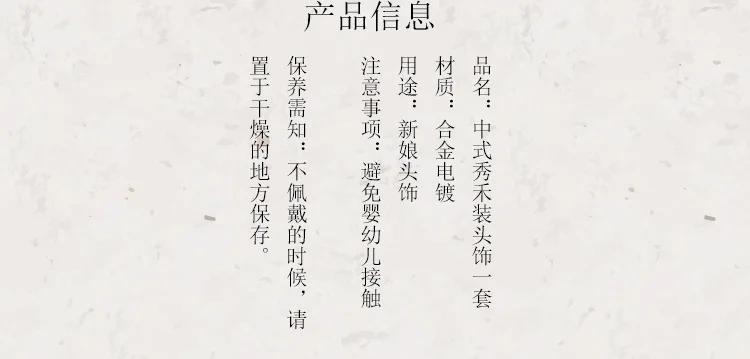 产品信息
品名：中式秀禾装头饰一套
材质：合金电镀
用途：新娘头饰
注意事项：避免婴幼儿接触
保养需知：不佩戴的时候，请
置于干燥的地方保存。